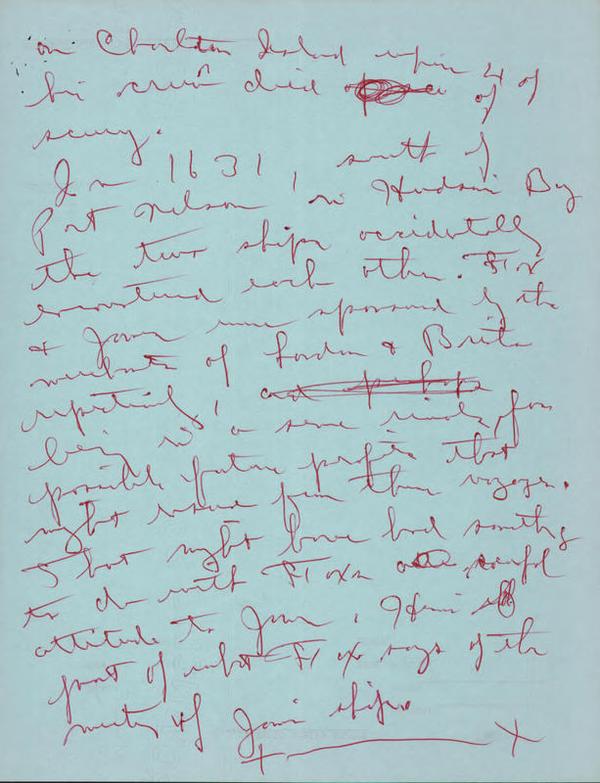 on Charlton Island where 4 of
his crew died of
scurvy.
In 1631, south of
Port Nelson, in Hudson Bay
the two ships accidentally
encountered each other. Fox
& James were sponsored by the
merchants of London & Bristol
respectively, and perhaps
being in a sense rivals, for
possible future profits that
might result from their voyages.
That might have had something
to do with Fox's scornful
attitude to James. Here is
part of what Fox says of the
meeting of James ships